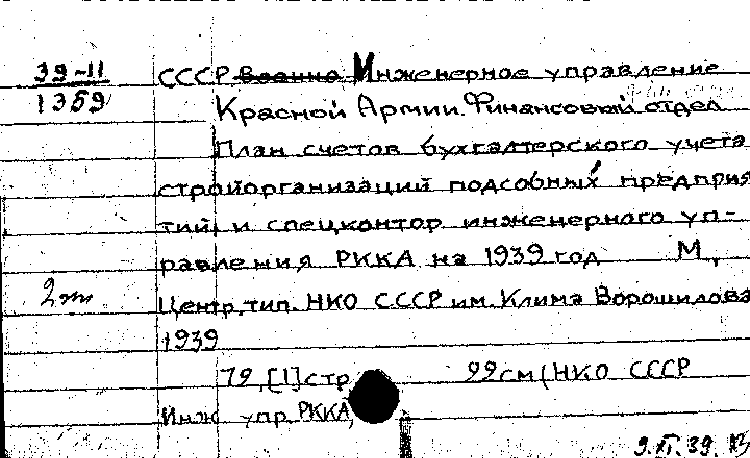 39-11
1359
СССР Военно Инженерное управление
Красной Армии. Финансовый отдел
План счетов бухгалтерского учета
стройорганизаций подсобных предприя
тий и спецконтор инженерного уп-
равления РККА на 1939 год М,
2 эт
Центр. тип. НКО СССР им. Клима Ворошилова
1939
79, [1] стр 99 см (НКО СССР
Инж упр. РККА,
9.XI.39.